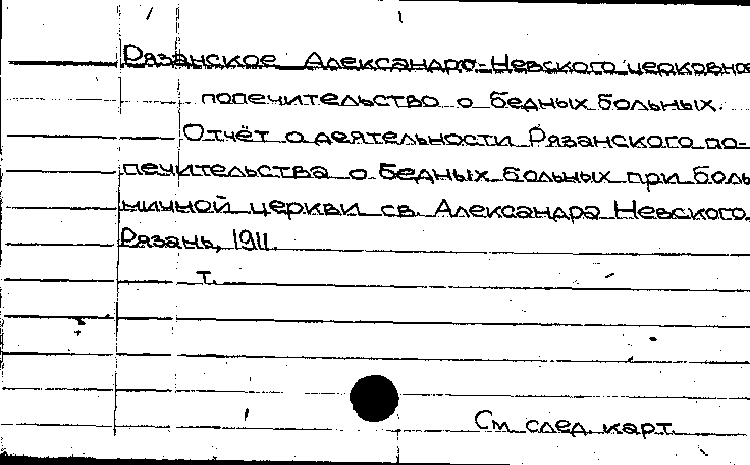 Рязанское Александро-Невского церковное
попечительство о бедных больных.
Отчёт о деятельности Рязанского по-
печительства о бедных больных при боль
ничной церкви св. Александра Невского.
Рязань, 1911.
т.
См. след. карт.